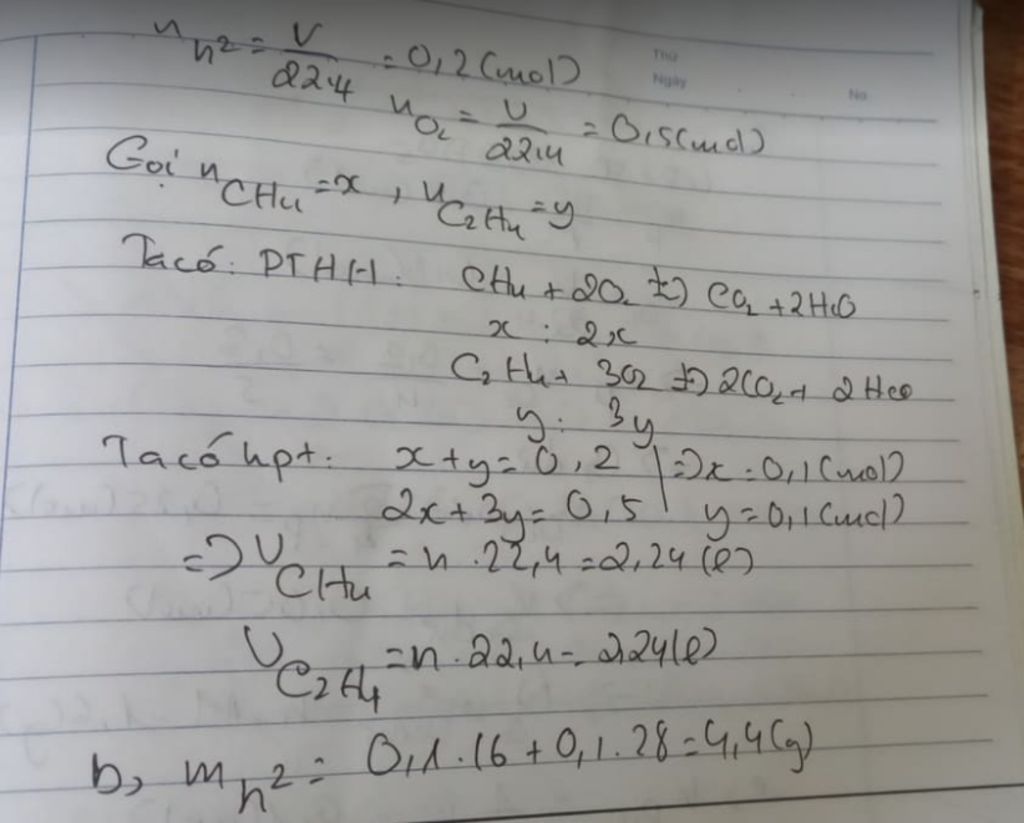 n h² = V/22,4 = 0,2 (mol)
Thứ
Ngày
No
n O₂ = V/22,4 = 0,5 (mol)
Gọi n CH₄ = x, n C₂H₄ = y
Ta có: PTHH: CH₄ + 2O₂ t°→ CO₂ + 2H₂O
x : 2x
C₂H₄ + 3O₂ t°→ 2CO₂ + 2H₂O
y : 3y
Ta có hpt: x + y = 0,2 | => x = 0,1 (mol)
2x + 3y = 0,5 | y = 0,1 (mol)
=> V CH₄ = n . 22,4 = 2,24 (l)
V C₂H₄ = n . 22,4 = 2,24 (l)
b, m h² = 0,1 . 16 + 0,1 . 28 = 4,4 (g)